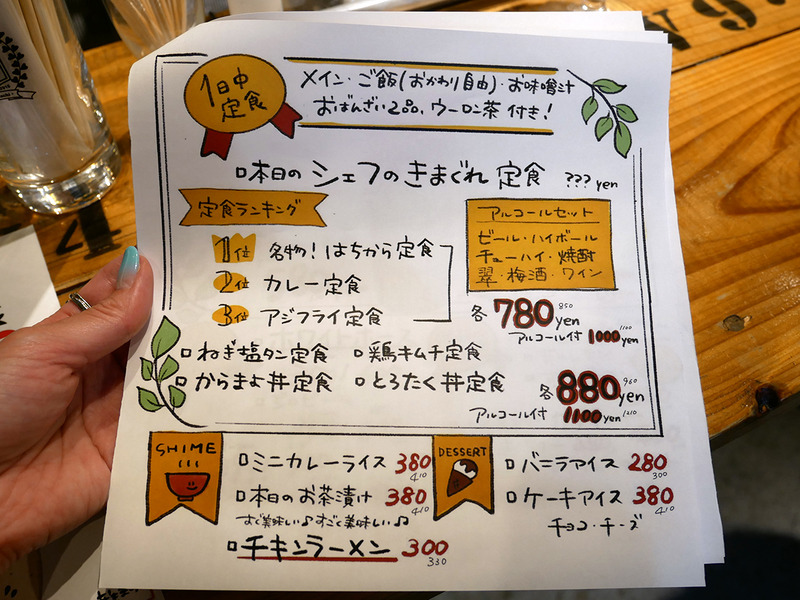 1日中
定食
メイン・ご飯(おかわり自由)・お味噌汁
おばんざい2品、ウーロン茶 付き!
本日の シェフの きまぐれ 定食 ??? yen
定食ランキング
1位 名物!はちから定食
2位 カレー定食
3位 アジフライ定食
アルコールセット
ビール・ハイボール
チューハイ・焼酎
翠・梅酒・ワイン
各 780 yen 850
アルコール付 1000 yen 1100
ねぎ塩タン定食 鶏キムチ定食
からまよ丼定食 とろたく丼定食
各 880 yen 960
アルコール付 1100 yen 1210
SHIME
ミニカレーライス 380
410
本日のお茶漬け 380
410
すご美味しい♪すごく美味しい♪
チキンラーメン 300
330
DESSERT
バニラアイス 280
300
ケーキアイス 380
410
チョコ・チーズ